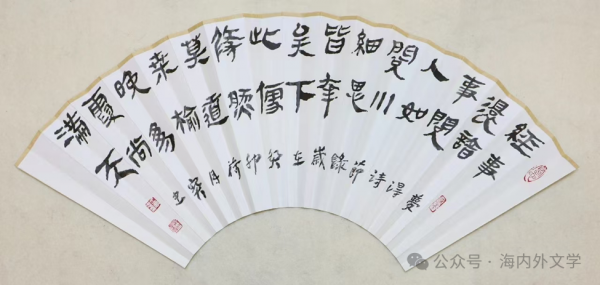 經事
還諳
事閱
人如
閱川
細思
皆幸
矣下
此便
翛然
莫道
桑榆
晚為
霞尚
滿天
夢得詩節錄歲在癸卯荷月
公众号·海内外文学